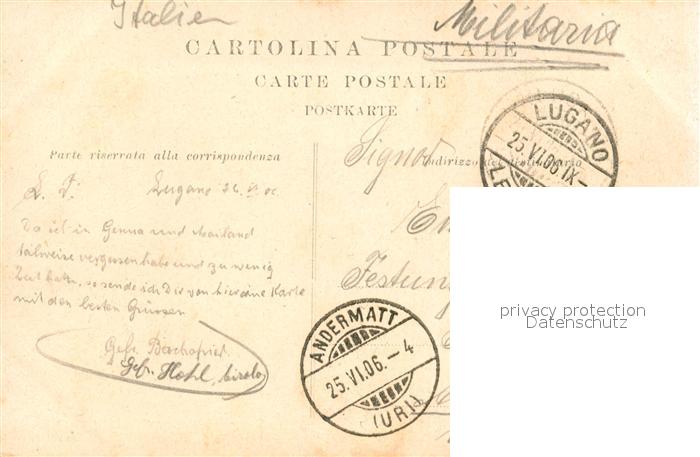 Italien
Militaria
CARTOLINA POSTALE
CARTE POSTALE
POSTKARTE
LUGANO
25.VI.06.IX-
Parte riserrata alla corrispondenza
Signor
Indirizzo del destinatario
L. Lugano 26. VI 06
Da ich in Genua und Mailand
teilweise vergessen habe und zu wenig
Zeit hatte, so sende ich Dir von hier eine Karte
mit den besten Grüssen
Festun
Gefr.
Gefr.
ANDERMATT
25.VI.06.-4
(URI)
privacy protection
Datenschutz